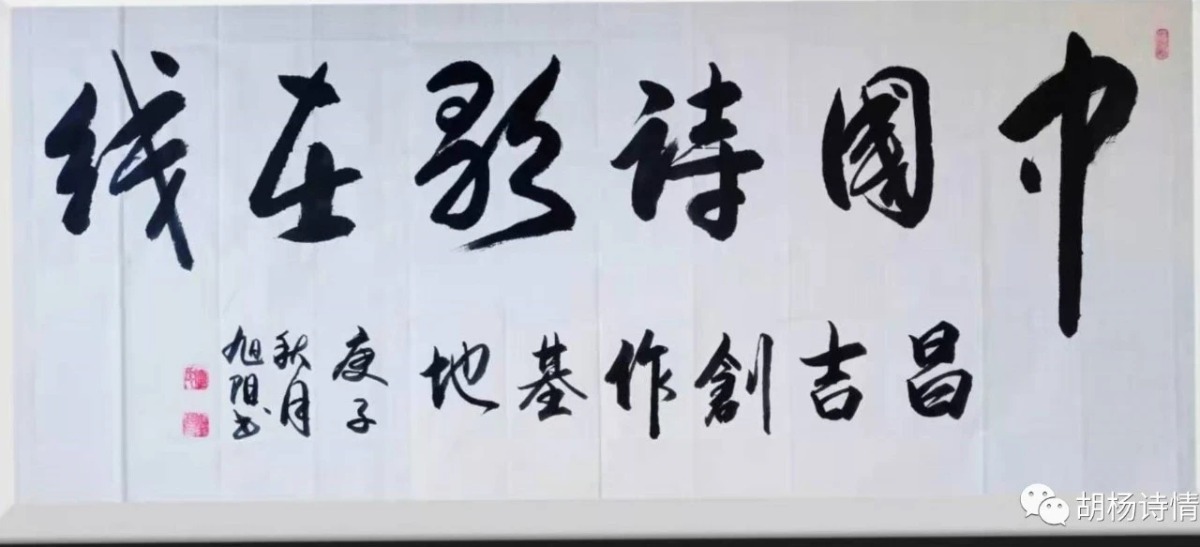 中國詩歌在线
昌吉創作基地
庚子
秋月
旭阳书
胡杨诗情